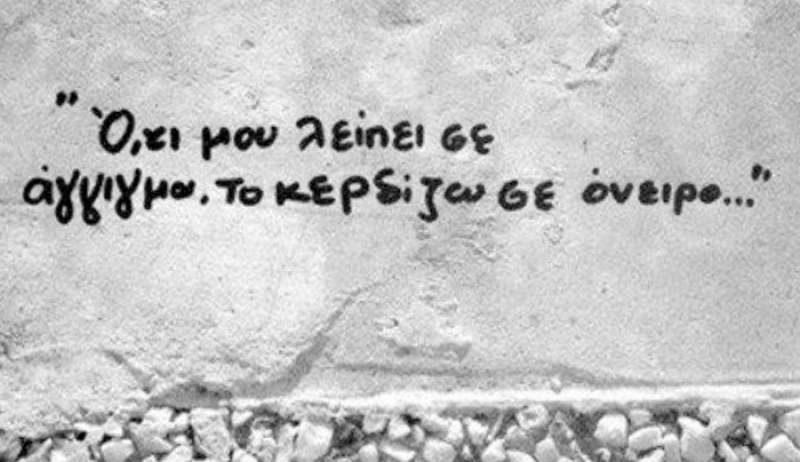 "Ό,τι μου λείπει σε
άγγιγμα, το κερδίζω σε όνειρο..."